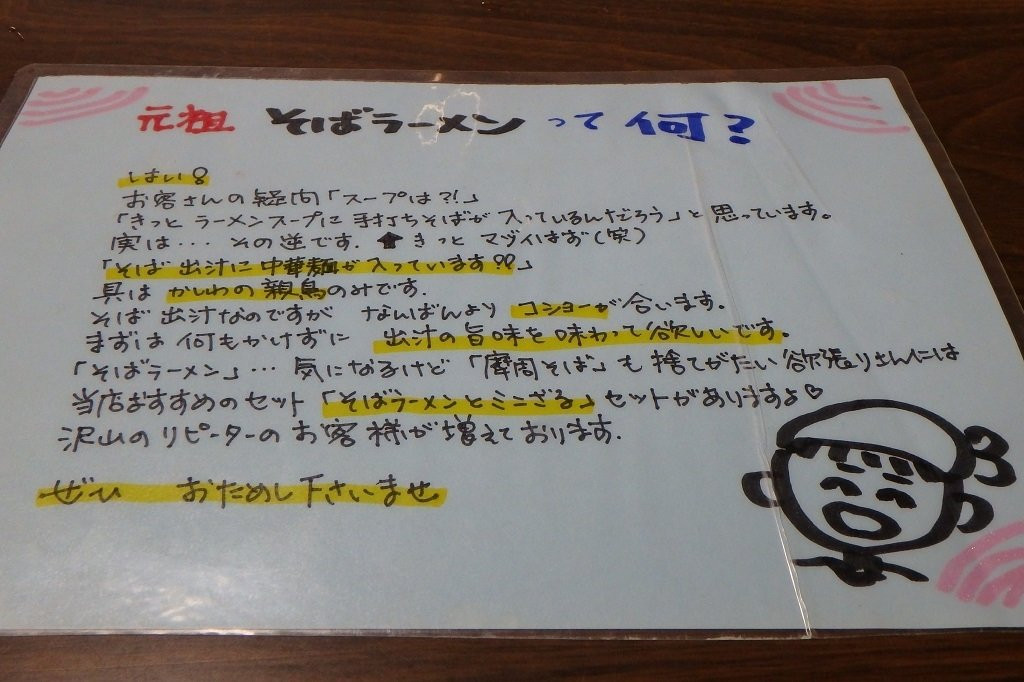 元祖 そばラーメンって何?
はい!
お客さんの疑問「スープは?!」
「きっと ラーメンスープに 手打ちそばが 入っているんだろう」と思っています。
実は… その逆です. ⬆きっと マヅイはず(笑)
「そば 出汁に 中華麺が入っています!!」
具は かしわの 親鳥のみです.
そば 出汁なのですが なんばんより コショーが合います.
まずは 何もかけずに 出汁の旨味を味わって欲しいです。
「そばラーメン」… 気になるけど「摩周そば」も捨てがたい欲張りさんには
当店おすすめのセット「そばラーメンとミニざる」セットがありますよ♡
沢山のリピーターのお客様が増えております.
ぜひ おためし下さいませ